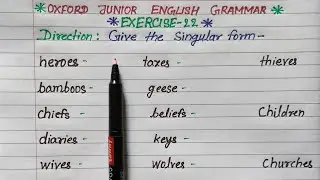 *OXFORD JUNIOR ENGLISH GRAMMAR*
*EXERCISE-22*
Direction: Give the Singular form-
heroes - taxes - thieves
bamboos - geese -
chiefs - beliefs - Children
diaries - keys -
wives - wolves - Churches